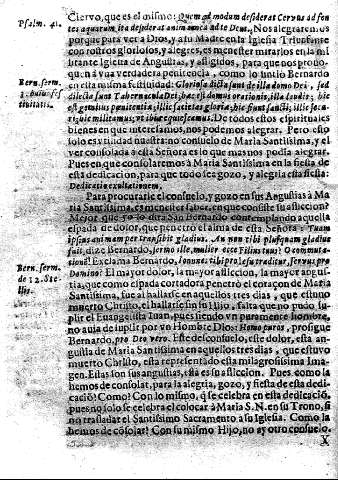 Psalm. 41.
Ciervo, que es el mismo: Quem admodum desiderat Cervus ad fon
tes aquarum, ita desiderat anima mea ad te Deus, Nos alegraremos
porque para ver a Dios, y a su Madre en la Iglesia Triunfante
con rostros gloriosos, y alegres, es menester mirarlos en la mi
litante Iglesia de Angustias, y afligidos, para que nos provo-
quen à una verdadera penitencia, como lo sintiò Bernardo
Bern. serm.
en esta misma festividad: Gloriosa dicta sunt de illa domo Dei, sed
dilecta sunt Tabernacula Dei, hæc est domus orationis, illa laudis; hic
est gratuius pœnitentia, illic societas gloria, hic sunt sancti, illic sa-
ti, hic militamus, vt ibi requiescamus. De todos estos espirituales
bienes en que interesamos, nos podemos alegrar. Pero esto
solo es vtilidad nuestra: no consuelo de Maria Santissima, y el
ver consolada à esta Señora es lo que mas nos podia alegrar.
Pues en que consolaremos à Maria Santissima en la fiesta de
esta dedicacion, para que todo sea gozo, y alegria esta fiesta:
Dedicatio exultationem.
Para procurarle el consuelo, y gozo en sus Angustias à Ma
ria Santissima, es menester saber, en que consiste su afliccion?
Mejor que yo lo dirà San Bernardo contemplando aquella
espada de dolor, que penetrò el alma de esta Señora: Tuam
ipsius animam pertransibit gladius. An non tibi plusquam gladius
fuit, dize Bernardo, sermo ille, mulier ecce Filius tuus? O commuta-
Bern. serm.
de 12. Ste
llis.
tionem! Exclama Bernardo, Ioannes tibi pro Iesu traditur, servus pro
Domino? El mayor dolor, la mayor afliccion, la mayor angus-
tia, que como espada cortadora penetrò el coraçon de Maria
Santissima, fue al hallarse en aquellos tres dias, que estuvo
muerto Christo, el hallarse sin su Hijo, falta que no pudo su-
plir el Euangelista Iuan, pues siendo vn puramente hombre,
no avia de suplir por vn Hombre Dios: Homo purus, prosigue
Bernardo, pro Deo vero. Este desconsuelo, este dolor, esta an-
gustia de Maria Santissima en aquellos tres dias, que estuvo
muerto Christo, està representado esta milagrosissima Ima-
gen. Estas son sus angustias, esta es su afliccion. Pues como la
hemos de consolar, para la alegria, gozo, y fiesta de esta dedi-
cació? Como? Con lo mismo, q̃ se celebra en esta dedicació,
pues no solo se celebra el colocar à Maria S. N. en su Trono, si
no trasladar el Santissimo Sacramento à su Iglesia. Como la
hemos de cósolar? Con su mismo Hijo, no ay otro consuelo.
X